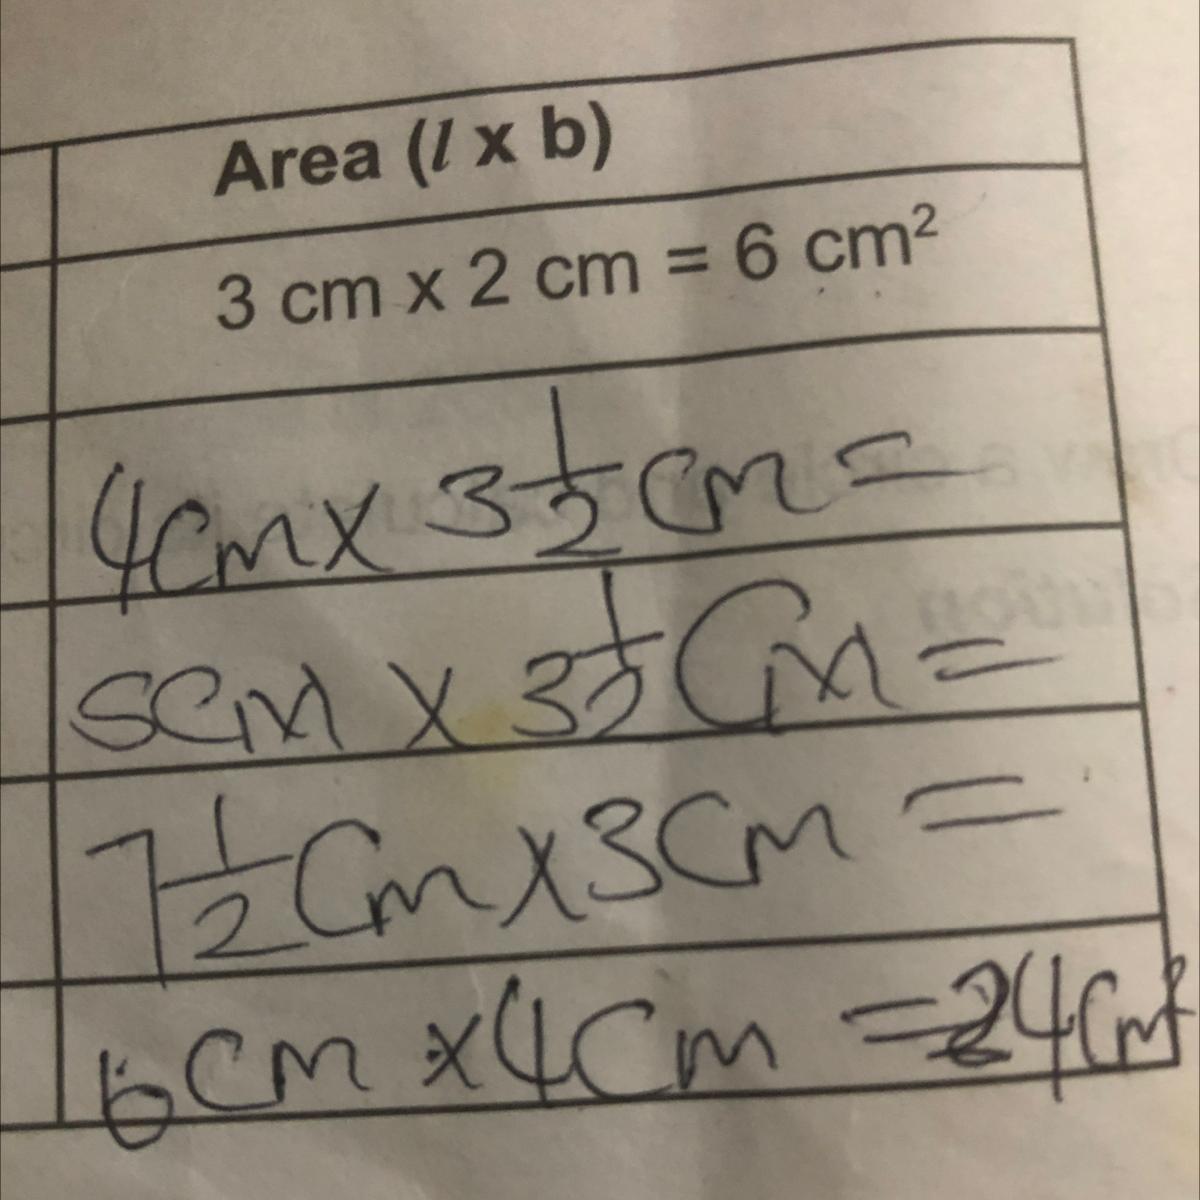 Area (l x b)
3 cm x 2 cm = 6 cm²
4cm x 3 1/2 cm =
5cm x 3 1/2 cm =
7 1/2 cm x 3cm =
6cm x 4cm = 24cm²